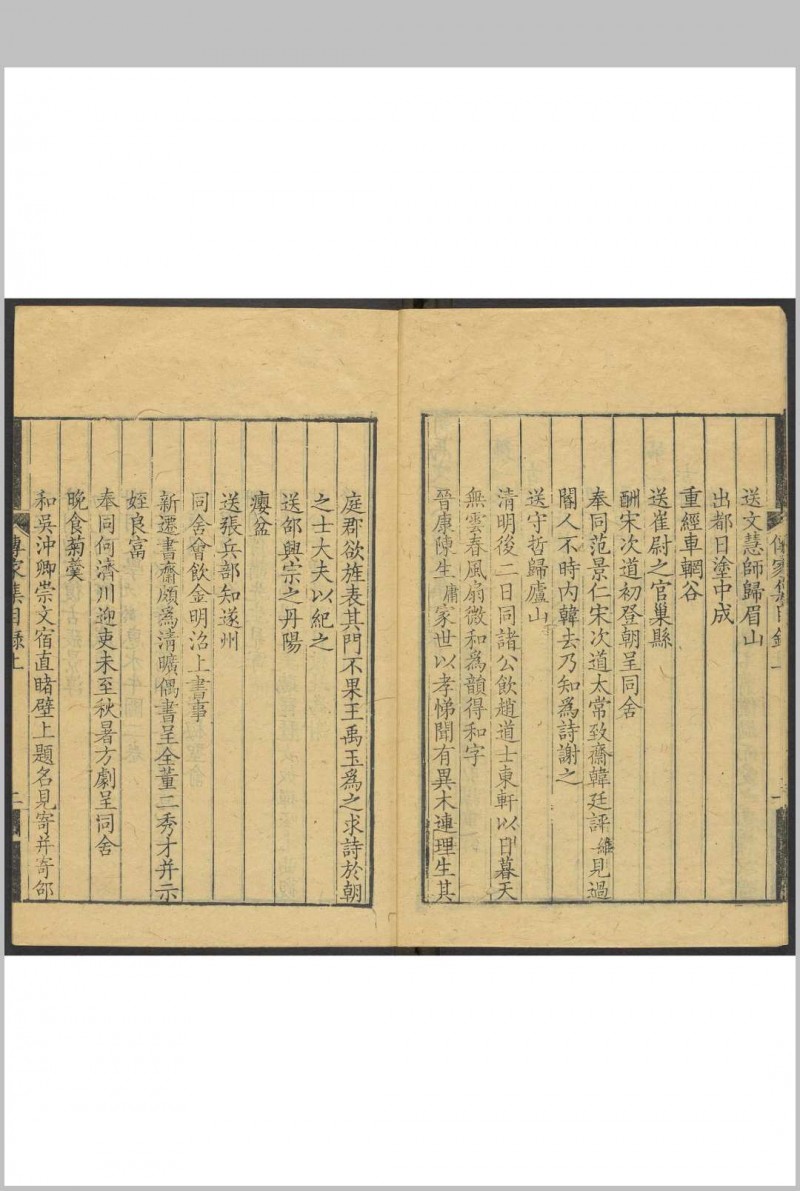 傳家集目錄上
送文慧師歸眉山
出都日塗中成
重經車輞谷
送崔尉之官巢縣
酬宋次道初登朝呈同舍
奉同范景仁宋次道太常致齋韓廷評維見過
閣人不時內韓去乃知為詩謝之
送守哲歸廬山
清明後二日同諸公飲趙道士東軒以日暮天
無雲春風扇微和為韻得和字
晉康陳生庸家世以孝悌聞有異木連理生其
庭郡欲旌表其門不果王禹玉為之求詩於朝
之士大夫以紀之
送邵興宗之丹陽
癭盆
送張兵部知遂州
同舍會飲金明沼上書事
新遷書齋頗為清曠偶書呈全董二秀才并示
姪良富
奉同何濟川迎吏未至秋暑方劇呈同舍
晚食菊羹
和吳沖卿崇文宿直睹壁上題名見寄并寄邵
傳家集目錄上
二